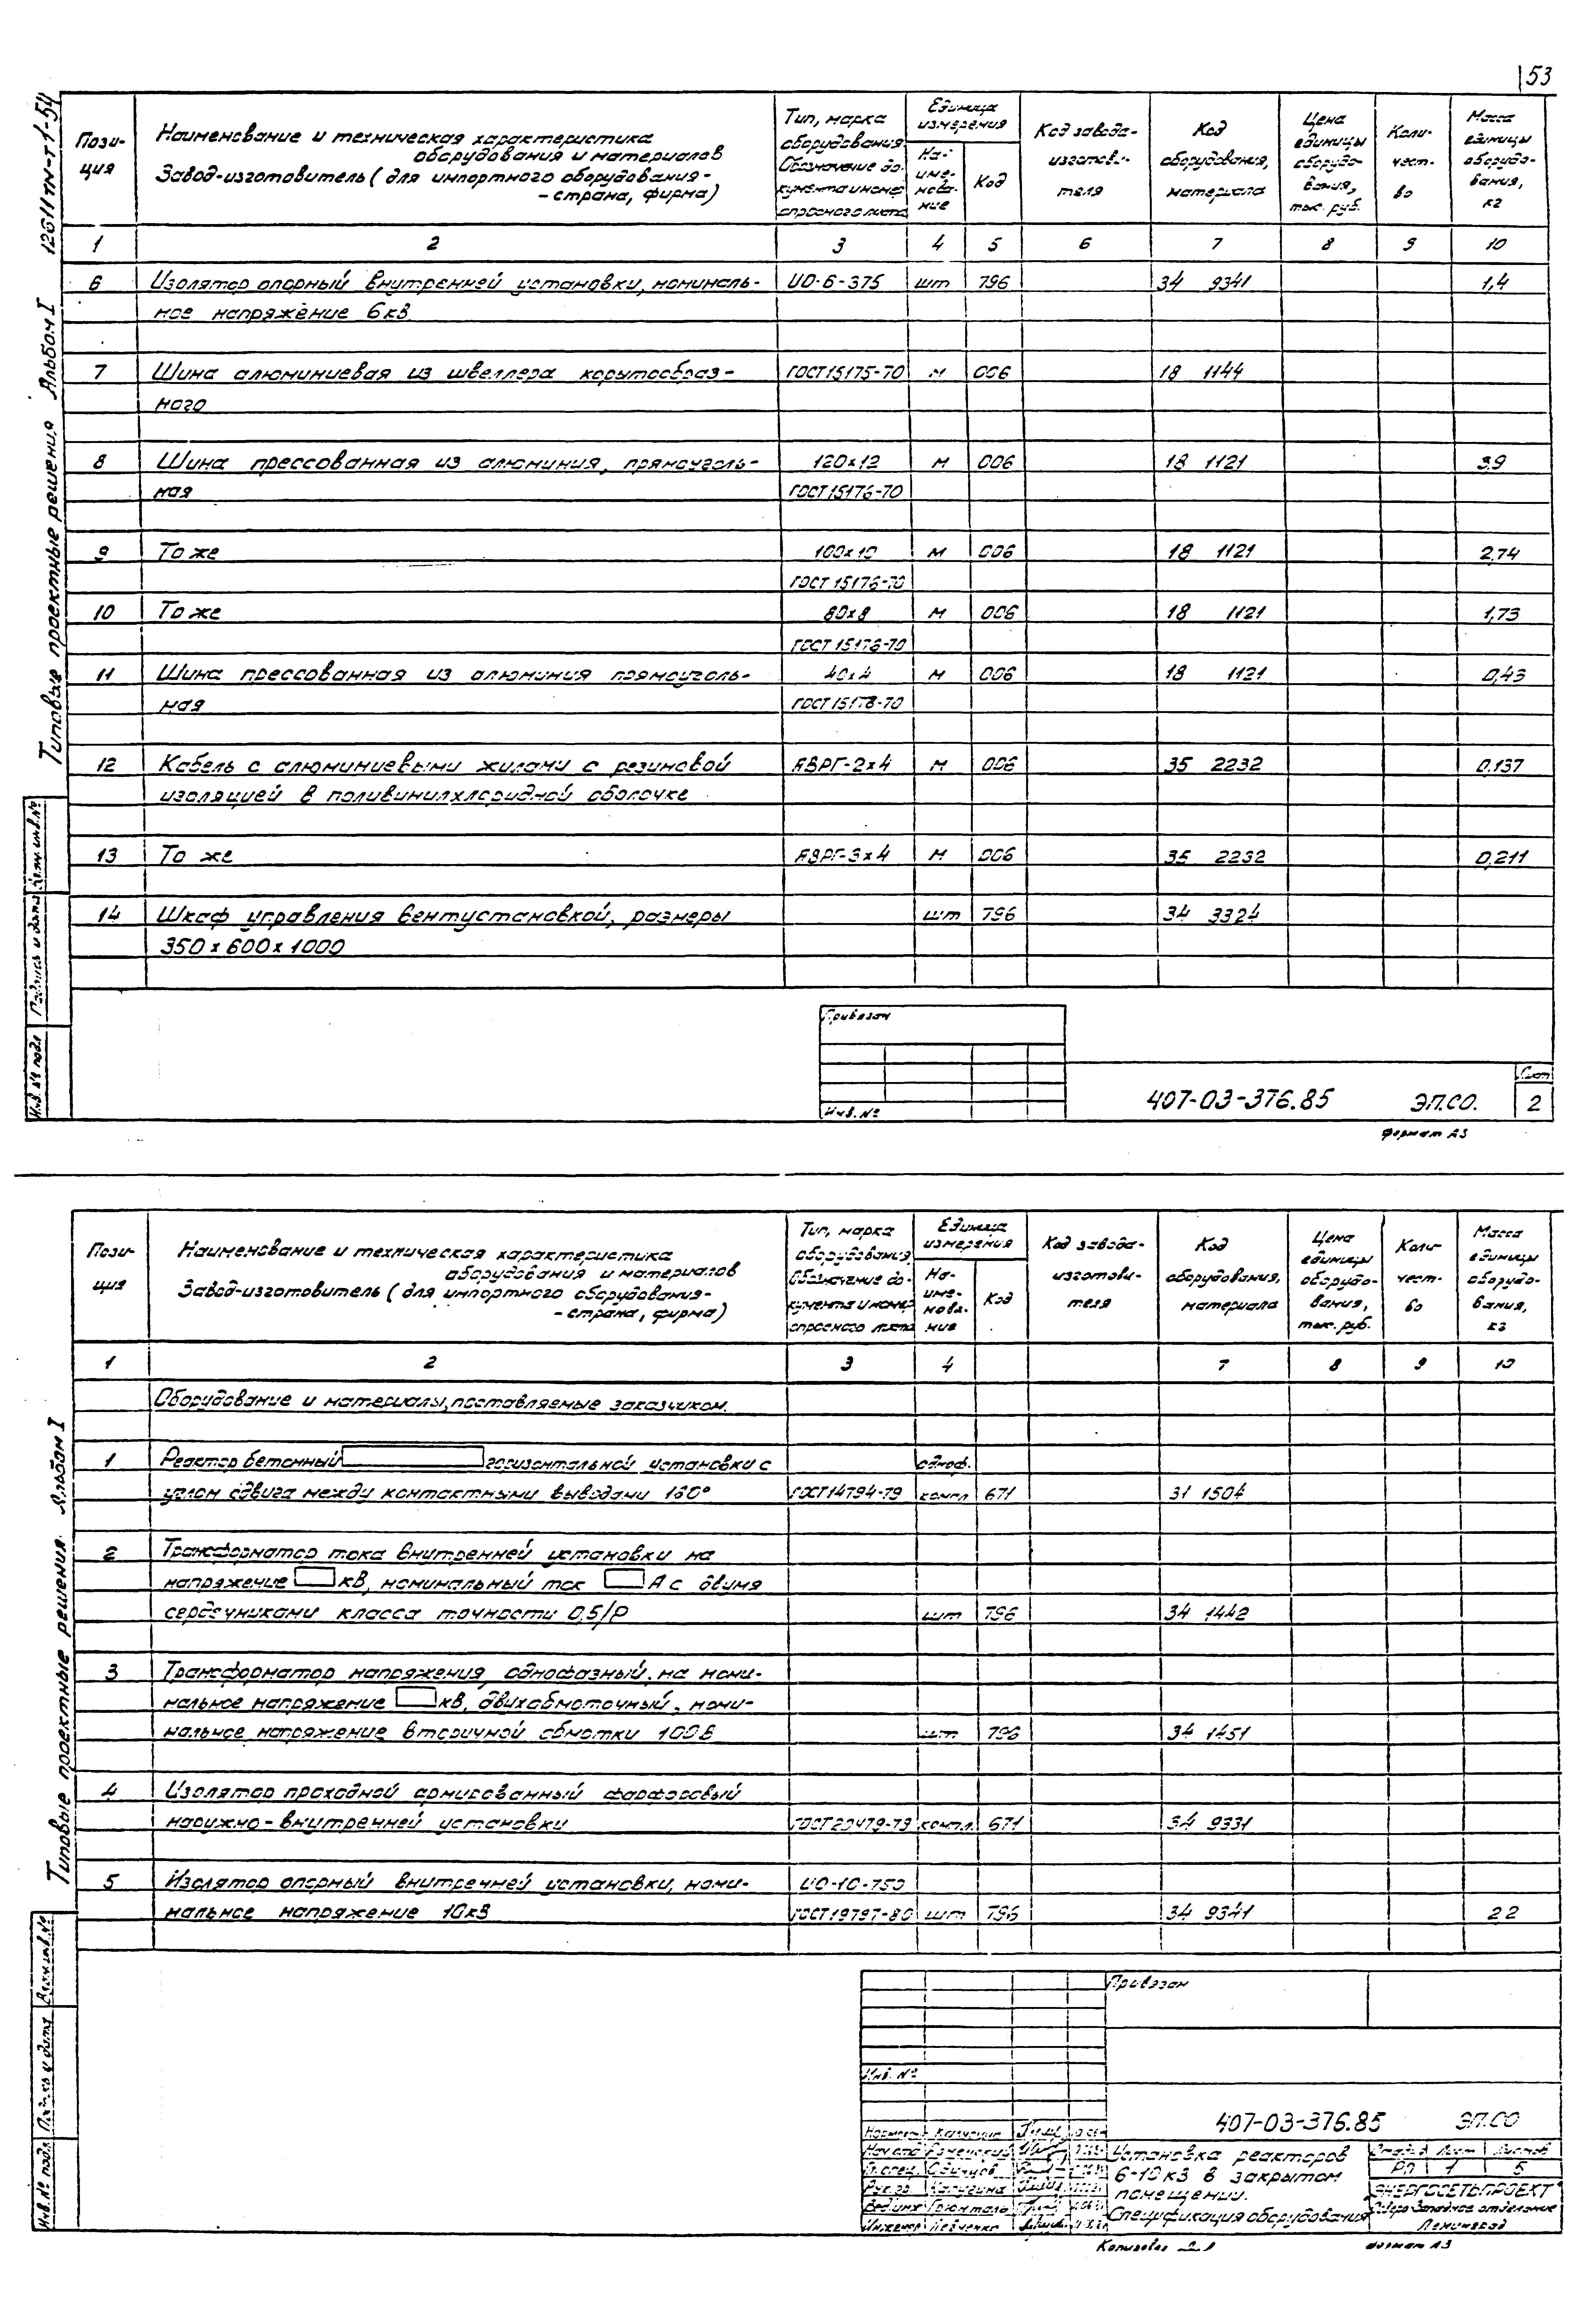 53
12611ТМ-Т1-54
Типовые проектные решения Альбом I
Пози-
ция
Наименование и техническая характеристика
оборудования и материалов
Завод-изготовитель (для импортного оборудования-
-страна, фирма)
Тип, марка
оборудования.
Обозначение до-
кумента и номер
опросного листа
Единица
измерения
На-
име-
нова-
ние
Код
Код завода-
изготови-
теля
Код
оборудования,
материала
Цена
единицы
оборудо-
вания,
тыс. руб.
Коли-
чест-
во
Масса
единицы
оборудо-
вания,
кг
1 2 3 4 5 6 7 8 9 10
6 Изолятор опорный внутренней установки, номиналь- ИО-6-375 шт 796 34 9341 1,4
ное напряжение 6кВ
7 Шина алюминиевая из швеллера корытообраз- ГОСТ 15175-70 м 006 18 1144
ного
8 Шина прессованная из алюминия, прямоуголь- 120х12 м 006 18 1121 3,9
ная ГОСТ 15176-70
9 То же 100х10 м 006 18 1121 2,74
ГОСТ 15176-70
10 То же 80х8 м 006 18 1121 1,73
ГОСТ 15176-70
11 Шина прессованная из алюминия прямоуголь- 40х4 м 006 18 1121 0,43
ная ГОСТ 15176-70
12 Кабель с алюминиевыми жилами с резиновой АВРГ-2х4 м 006 35 2232 0.137
изоляцией в поливинилхлоридной оболочке
13 То же АВРГ-3х4 м 006 35 2232 0,211
14 Шкаф управления вентустановкой, размеры шт 796 34 3324
350х600х1000
Инв. № подл Подпись и дата Взам. инв. №
Привязан
Инв. №
407-03-376.85 ЭП.СО.
Лист
2
Формат А3
Типовые проектные решения. Альбом I
Пози-
ция
Наименование и техническая характеристика
оборудования и материалов
Завод-изготовитель (для импортного оборудования-
-страна, фирма)
Тип, марка
оборудования.
Обозначение до-
кумента и номер
опросного листа
Единица
измерения
На-
име-
нова-
ние
Код
Код завода-
изготови-
теля
Код
оборудования,
материала
Цена
единицы
оборудо-
вания,
тыс. руб.
Коли-
чест-
во
Масса
единицы
оборудо-
вания,
кг
1 2 3 4 7 8 9 10
Оборудование и материалы, поставляемые заказчиком.
1 Реактор бетонный горизонтальной установки с одноф.
углом сдвига между контактными выводами 180° ГОСТ 14794-79 компл 671 31 1504
2 Трансформатор тока внутренней установки на
напряжение кВ, номинальный ток А с двумя
сердечниками класса точности 0,5/Р шт 796 34 1442
3 Трансформатор напряжения, однофазный, на номи-
нальное напряжение кВ, двухобмоточный, номи-
нальное напряжение вторичной обмотки 100В шт 796 34 1451
4 Изолятор проходной армированный фарфоровый
наружно-внутренней установки ГОСТ 20479-79 компл. 671 34 9331
5 Изолятор опорный внутренней установки, номи- ИО-10-750
нальное напряжение 10кВ ГОСТ 19797-80 шт 796 34 9341 2,2
Инв. № подл Подпись и дата Взам. инв. №
Привязан
Инв. №
407-03-376.85 ЭП.СО
Установка реакторов
6-10кВ в закрытом
помещении.
Спецификация оборудования
Стадия Лист Листов
РП 1 5
ЭНЕРГОСЕТЬПРОЕКТ
Северо-Западное отделение
Ленинград
Нач.отд Роменский
Гл.спец. Одинцов
Рук.гр. Калугина
Вед.инж
Инженер Левченко
Копировал
Формат А3